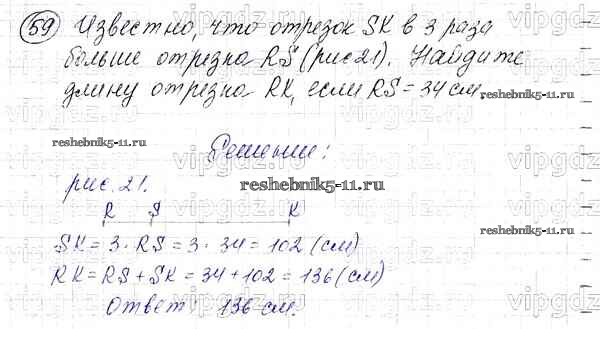 59 Известно, что отрезок SK в 3 раза
больше отрезка RS (рис 21). Найдите
длину отрезка RK, если RS = 34 см.
reshebnik5-11.ru
reshebnik5-11.ru
Решение:
рис. 21.
reshebnik5-11.ru
R S K
reshebnik5-11.ru
SK = 3 · RS = 3 · 34 = 102 (см)
RK = RS + SK = 34 + 102 = 136 (см)
Ответ: 136 см.